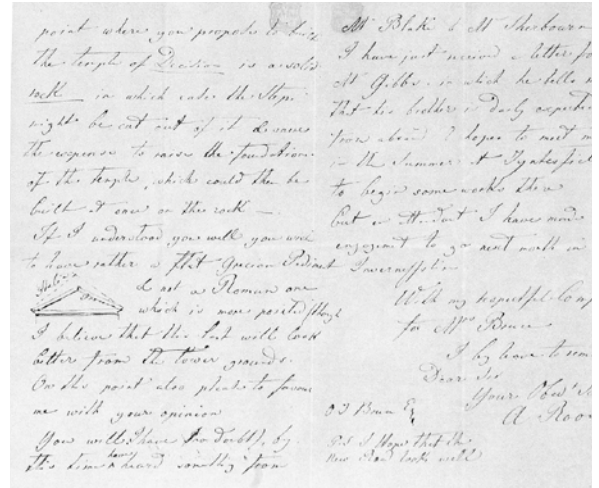 point where you propose to build
the temple of Decision is a solid
rock in which case the Steps
might be cut out of it & saves
the expense to raise the foundation
of the temple, which could then be
built at once on the rock —
If I understood you well you wish
to have rather a flat Grecian Pediment
& not a Roman one
which is more pointed though
I believe that the last will look
better from the lower grounds.
On this point also please to favour
me with your opinion
You will I have (no doubt), by
this time heard something from
Mr Blake & Mr Sherbourn
I have just received a letter fro
Mr Gibbs in which he tells m
that his brother is Daily expected
from abroad & hopes to meet m
in the Summer at Tyntesfield
to begin some works there
but on that I have made
engagement to go next month in
Invernesshire
With my respectful Comp
for Mrs Bruce
I beg leave to rem
Dear Sir
Your Obt S
A Roo
O T Bruce Esq
P.S. I hope that the
new Road looks well